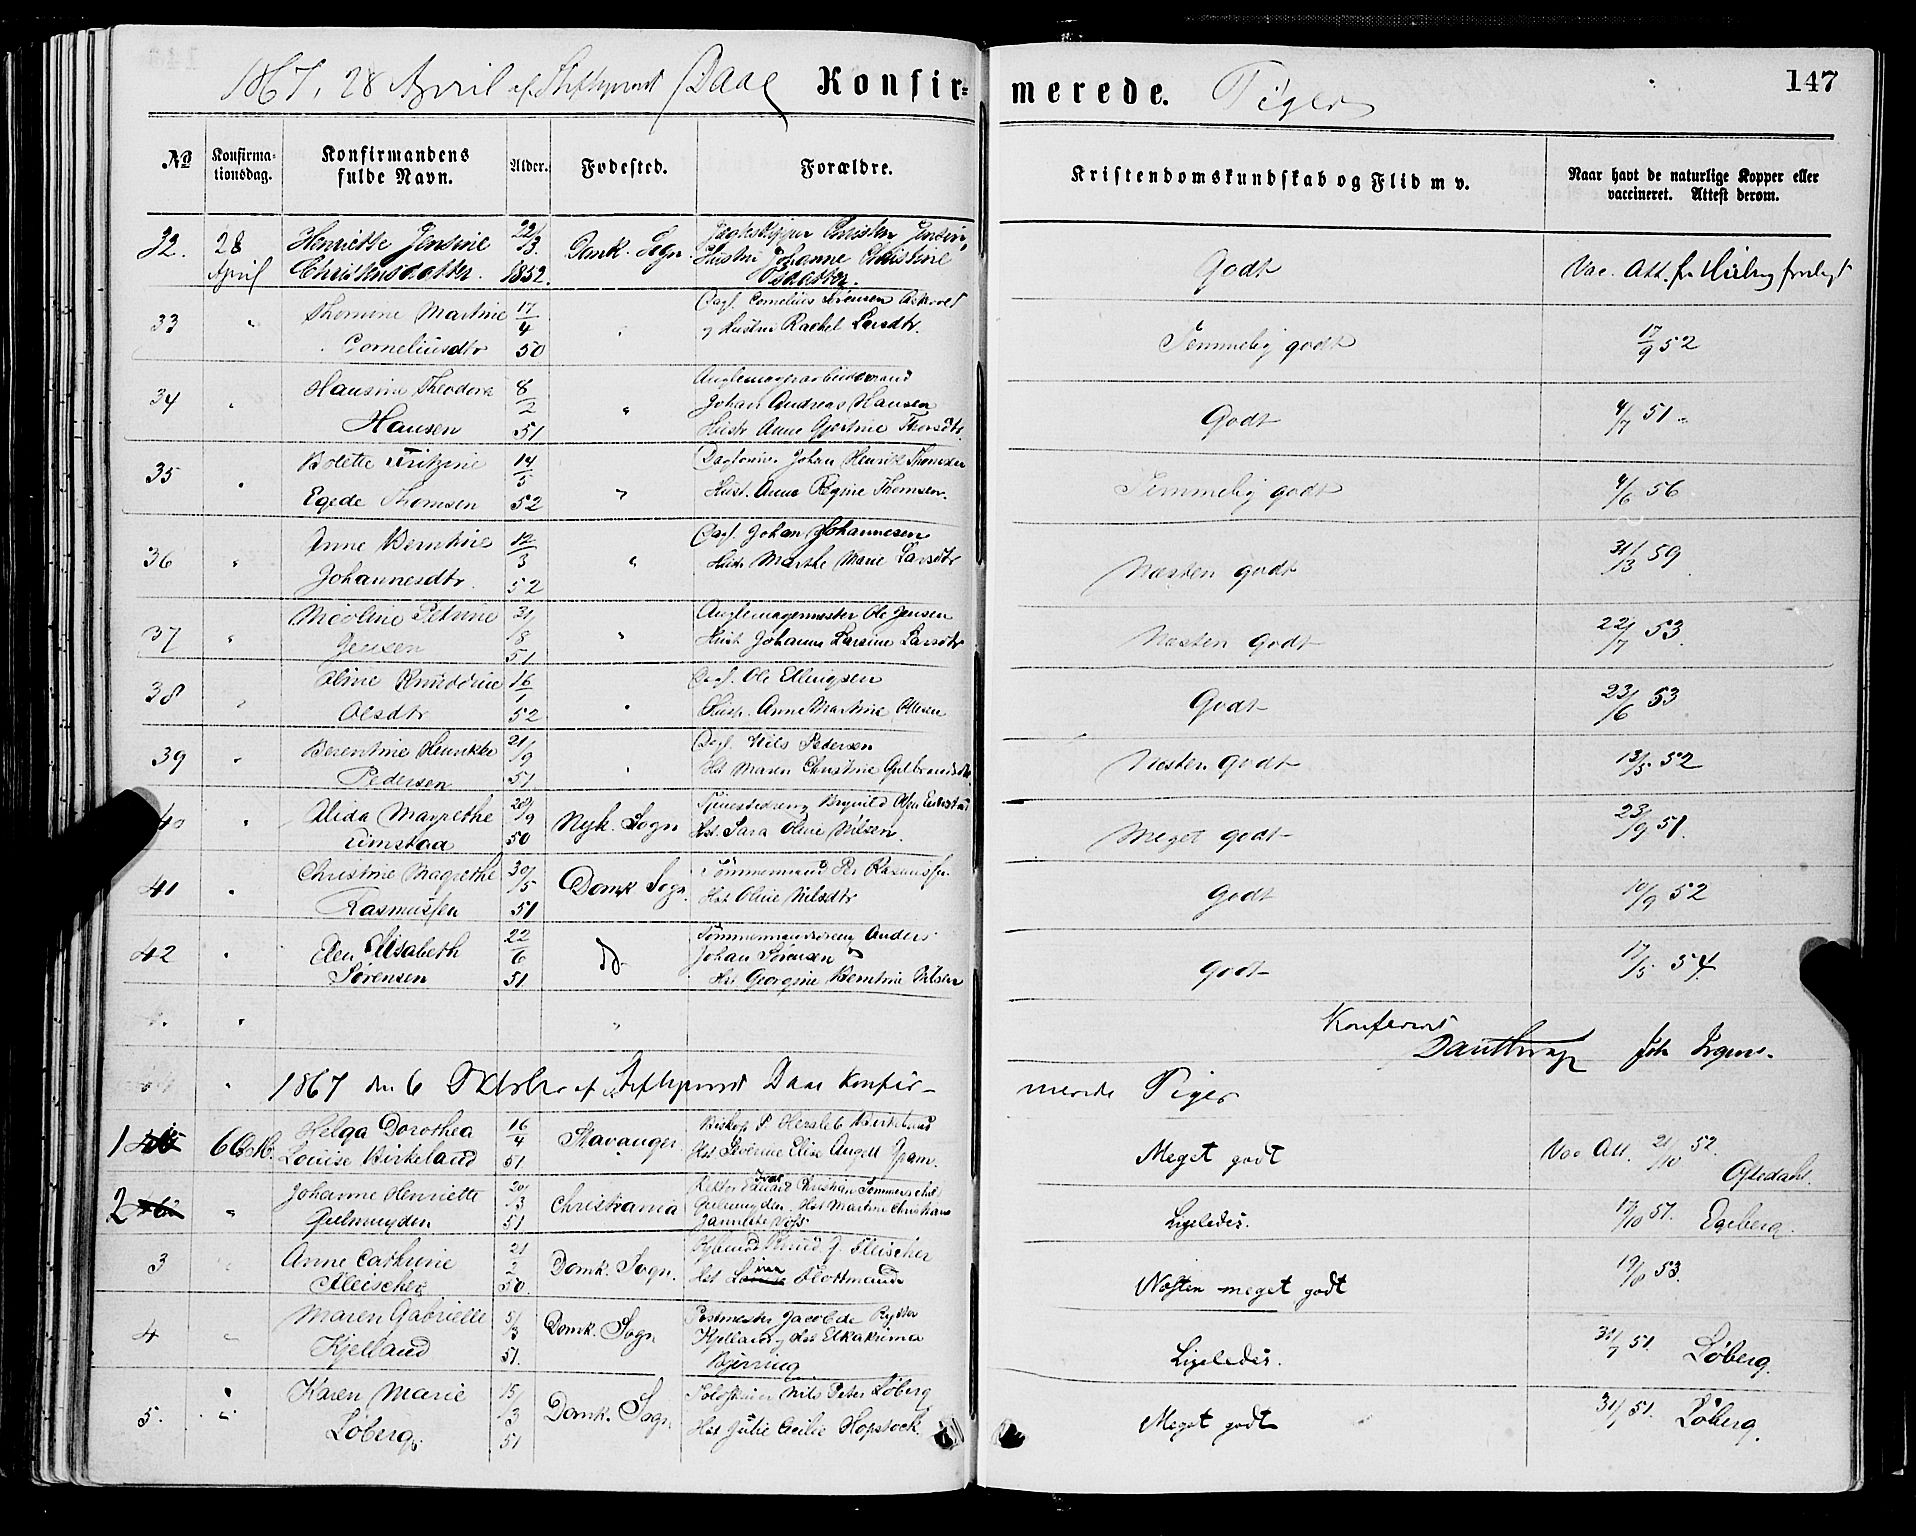 1867, 28 April af Stiftsprovst Daae Konfir=
merede. Piger
147
№
Konfirma-
tionsdag.
Konfirmandens
fulde Navn.
Alder.
Fødested.
Forældre.
Kristendomskundskab og Flid m v.
Naar havt de naturlige Kopper eller
vaccineret. Attest derom.
32. 28 Henriette Jentine 22/3 Domk. Sogn. Christen Jensen,
April Christensdatter. 1852. Hustru Johanne Christine
Godt Vac. Att.
33 " Thomine Martine 17/4 " Dagl. Cornelius Sørensen
Corneliusdtr 50 og Hustru Rachel Larsdtr.
Temmelig godt 17/9 52
34 " Hansine Theodora 8/2 "
Johan Andreas Hansen
Hansen 51 Hustr Anne Gjertine
Godt 4/7 51
35 " Bolette Fritzine 14/5 " Johan Henrik Thomsen
Egede Thomsen 52 Hust. Anne Regine Thomsen.
Temmelig godt 4/6 56
36 " Anne Berntine 12/3 " Dagl. Johan Johannesen
Johannesdtr. 52 Hustr Marthe Marie Larsdtr
Næsten godt 31/3 59
37 " Nicoline Petrine 31/8 " Ole Jensen
Jensen 51 Hust. Johanne Larsine Larsdtr
Næsten godt 22/7 53.
38 " Oline Knuddine 16/1 " Dagl. Ole Ellingsen
Olsdtr 52 Anne Martine Olsen
Godt 23/6 53
39 " Berentine Henrikke 21/9 " Dagl. Nils Pedersen
Pedersen 51 Hst Maren Christine
Næsten godt 13/5 52
40 " Alida Magrethe 20/9 Nyk. Sogn
50 Hst. Sara Oline Nilsen.
Meget godt 23/9 51.
41 " Christine Magrethe 30/5 Domk Sogn. Tømmermand Rasmussen
Rasmussen 51 Hst Oline Nilsdtr
Godt 10/9 52
42 " Elen Elisabeth 22/6 do Tømmermandsdreng Anders
Johan Sørensen
Sørensen 51 Hst Georgine Berntine Nilsen
Godt 17/5 54
Konfereret
1867 den 6 Oktober af Stiftsprovst Daae Konfir-
merede Piger
1 6 Okb. Helga Dorothea 16/4 Stavanger. Biskop P Hersleb Birkeland
Louise Birkeland 51 Hst Severine Elise Angell Gram.
Meget godt Vac Att. 21/10 52. Oftedahl.
2 " Johanne Henriette 20/3 Christiania Rektor Christian Sommerschild
Geelmuyden 51 Geelmuyden. Hst Martine Christiane
Jannette Voss
Ligeledes. 17/10 57. Egeberg.
3 " Anne Cathrine 21/2 Domk. Sogn. Kjbmd Knud G. Fleischer
Fleischer 50
Næsten meget godt 19/8 53.
4 " Maren Gabrielle 5/3 Domk. Sogn Postmester Jacob de Rytter
Kjelland 51. Kjelland og Hst
Bjørring
Ligeledes. 31/7 51. Løberg.
5. " Karen Marie 15/3 Domk. Sogn. Nils Peter Løberg
Løberg. 51 Hst Julie Cecilie Hopstock.
Meget godt 31/7 51. Løberg.